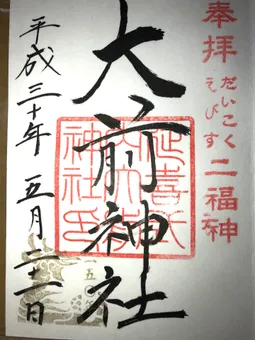 奉拝
だいこく
えびす
二福神
大前神社
延喜式内
大前
神社印
平成三十年 五月二十一日